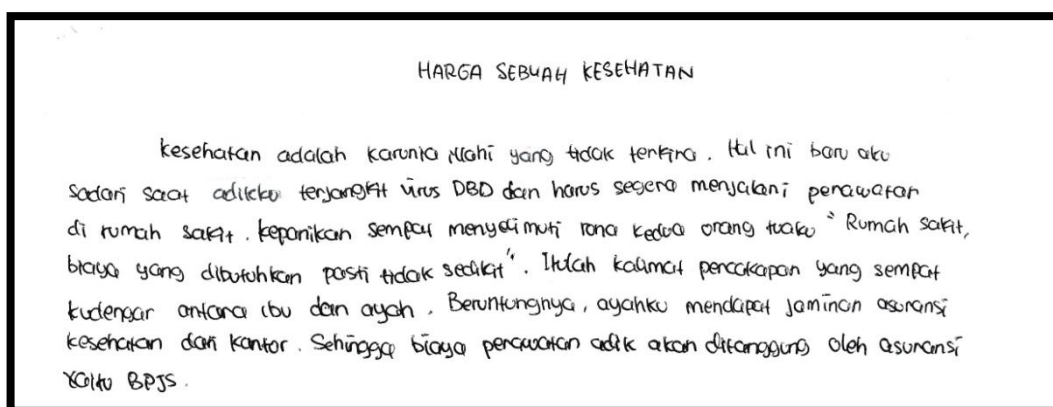 HARGA SEBUAH KESEHATAN
kesehatan adalah karunia Illahi yang tidak terkira. Hal ini baru aku
sadari saat adikku terjangkit virus DBD dan harus segera menjalani perawatan
di rumah sakit. kepanikan sempat menyelimuti rona kedua orang tuaku "Rumah sakit,
biaya yang dibutuhkan pasti tidak sedikit". Itulah kalimat percakapan yang sempat
kudengar antara ibu dan ayah. Beruntungnya, ayahku mendapat jaminan asuransi
kesehatan dari kantor. Sehingga biaya perawatan adik akan ditanggung oleh asuransi
yaitu BPJS.